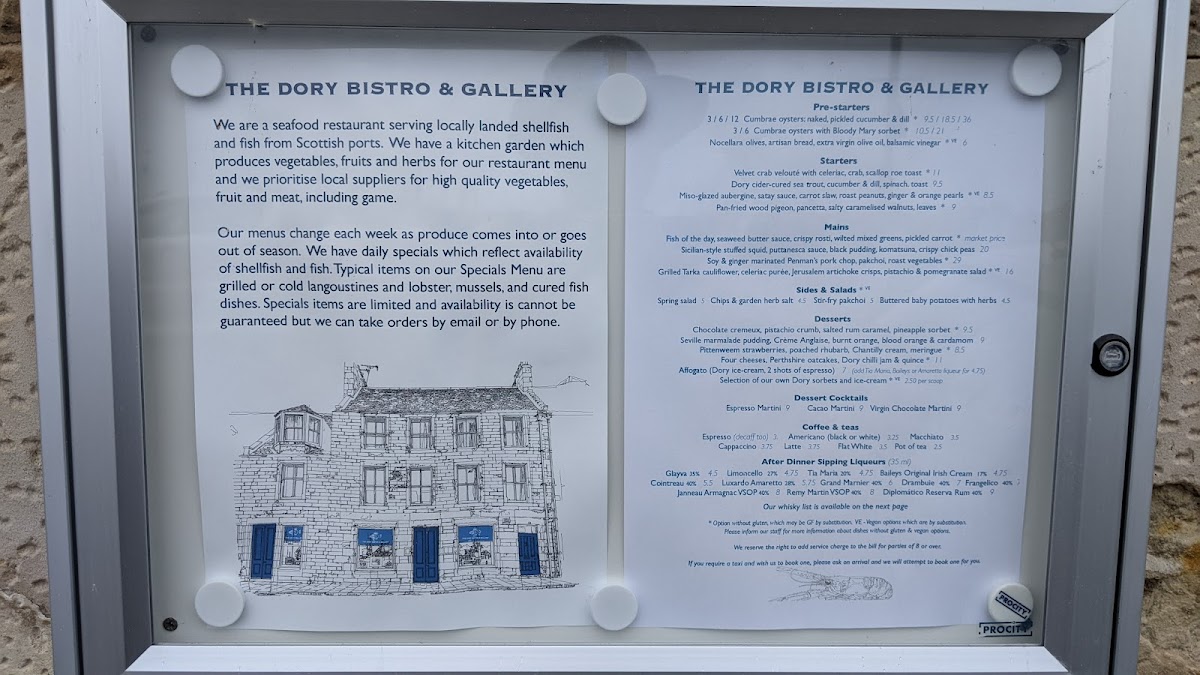 THE DORY BISTRO & GALLERY
We are a seafood restaurant serving locally landed shellfish
and fish from Scottish ports. We have a kitchen garden which
produces vegetables, fruits and herbs for our restaurant menu
and we prioritise local suppliers for high quality vegetables,
fruit and meat, including game.
Our menus change each week as produce comes into or goes
out of season. We have daily specials which reflect availability
of shellfish and fish. Typical items on our Specials Menu are
grilled or cold langoustines and lobster, mussels, and cured fish
dishes. Specials items are limited and availability is cannot be
guaranteed but we can take orders by email or by phone.
THE DORY BISTRO & GALLERY
Pre-starters
3 / 6 / 12 Cumbrae oysters: naked, pickled cucumber & dill * 9.5 / 18.5 / 36
3 / 6 Cumbrae oysters with Bloody Mary sorbet * 10.5 / 21
Nocellara olives, artisan bread, extra virgin olive oil, balsamic vinegar * VE 6
Starters
Velvet crab velouté with celeriac, crab, scallop roe toast * 11
Dory cider-cured sea trout, cucumber & dill, spinach, toast 9.5
Miso-glazed aubergine, satay sauce, carrot slaw, roast peanuts, ginger & orange pearls * VE 8.5
Pan-fried wood pigeon, pancetta, salty caramelised walnuts, leaves * 9
Mains
Fish of the day, seaweed butter sauce, crispy rosti, wilted mixed greens, pickled carrot * market price
Sicilian-style stuffed squid, puttanesca sauce, black pudding, komatsuna, crispy chick peas 20
Soy & ginger marinated Penman's pork chop, pakchoi, roast vegetables * 29
Grilled Tarka cauliflower, celeriac purée, Jerusalem artichoke crisps, pistachio & pomegranate salad * VE 16
Sides & Salads * VE
Spring salad 5 Chips & garden herb salt 4.5 Stir-fry pakchoi 5 Buttered baby potatoes with herbs 4.5
Desserts
Chocolate cremeux, pistachio crumb, salted rum caramel, pineapple sorbet * 9.5
Seville marmalade pudding, Crème Anglaise, burnt orange, blood orange & cardamom 9
Pittenweem strawberries, poached rhubarb, Chantilly cream, meringue * 8.5
Four cheeses, Perthshire oatcakes, Dory chilli jam & quince * 11
Affogato (Dory ice-cream, 2 shots of espresso) 7 (add Tia Maria, Baileys or Amaretto liqueur for 4.75)
Selection of our own Dory sorbets and ice-cream * VE 2.50 per scoop
Dessert Cocktails
Espresso Martini 9 Cacao Martini 9 Virgin Chocolate Martini 9
Coffee & teas
Espresso (decaff too) 3 Americano (black or white) 3.25 Macchiato 3.5
Cappuccino 3.75 Latte 3.75 Flat White 3.5 Pot of tea 2.5
After Dinner Sipping Liqueurs (35 ml)
Glayva 35% 4.5 Limoncello 27% 4.75 Tia Maria 20% 4.75 Baileys Original Irish Cream 17% 4.75
Cointreau 40% 5.5 Luxardo Amaretto 28% 5.75 Grand Marnier 40% 6 Drambuie 40% 7 Frangelico 40%
Janneau Armagnac VSOP 40% 8 Remy Martin VSOP 40% 8 Diplomático Reserva Rum 40% 9
Our whisky list is available on the next page
* Option without gluten, which may be GF by substitution. VE - Vegan options which are by substitution.
Please inform our staff for more information about dishes without gluten & vegan options.
We reserve the right to add service charge to the bill for parties of 8 or over.
If you require a taxi and wish us to book one, please ask on arrival and we will attempt to book one for you.
PROCITY
PROCITY